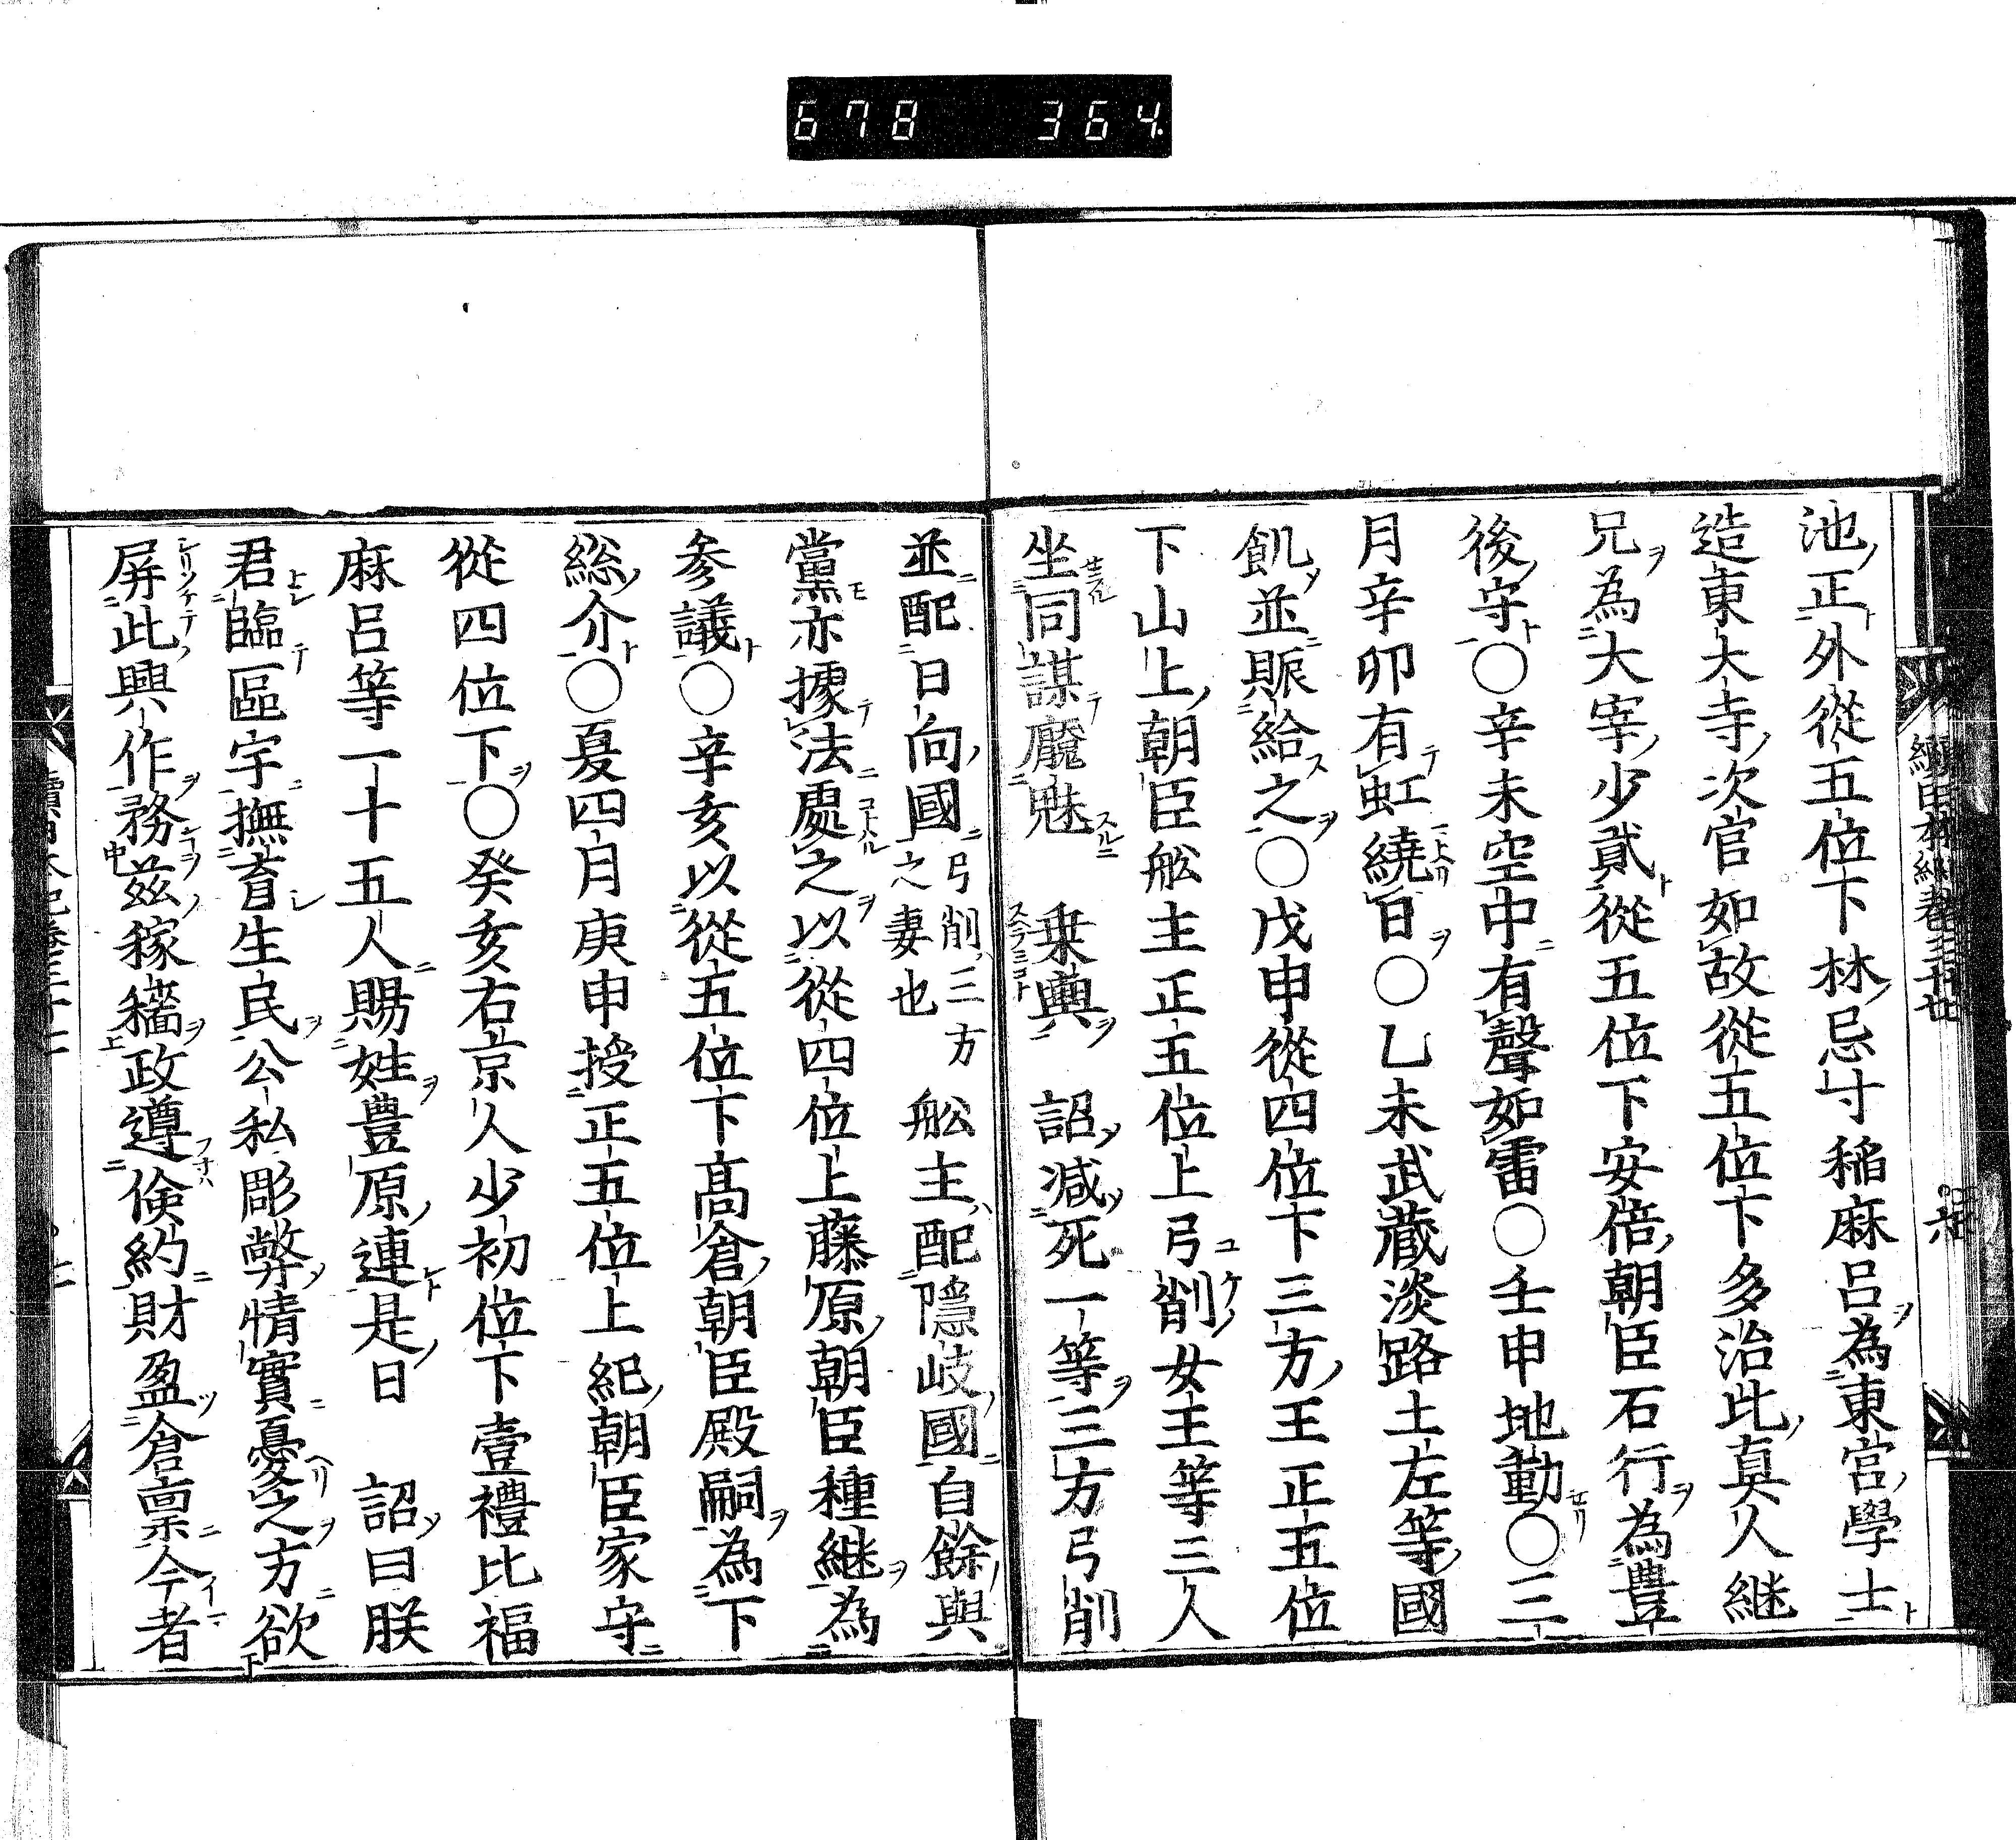 678 364
池正外從五位下林忌寸稲麻呂為東宮學士
造東大寺次官如故從五位下多治比真人継
兄為大宰少貳從五位下安倍朝臣石行為豊
後守○辛未空中有聲如雷○壬申地動○三
月辛卯有虹繞日○乙未武蔵淡路土左等國
飢並賑給之○戊申從四位下三方王正五位
下山上朝臣舩主正五位上弓削女王等三人
坐同謀魘魅乗輿 詔減死一等三方弓削
並配日向國弓削三方之妻也舩主配隠岐國自餘與
黨亦據法處之以從四位上藤原朝臣種継為
参議○辛亥以從五位下髙倉朝臣殿嗣為下
総介○夏四月庚申授正五位上紀朝臣家守
從四位下○癸亥右京人少初位下壹禮比福
麻呂等一十五人賜姓豊原連是日 詔曰朕
君臨區宇撫育生民公私彫弊情實憂之方欲
屏此興作務茲稼穡政遵倹約財盈倉禀今者